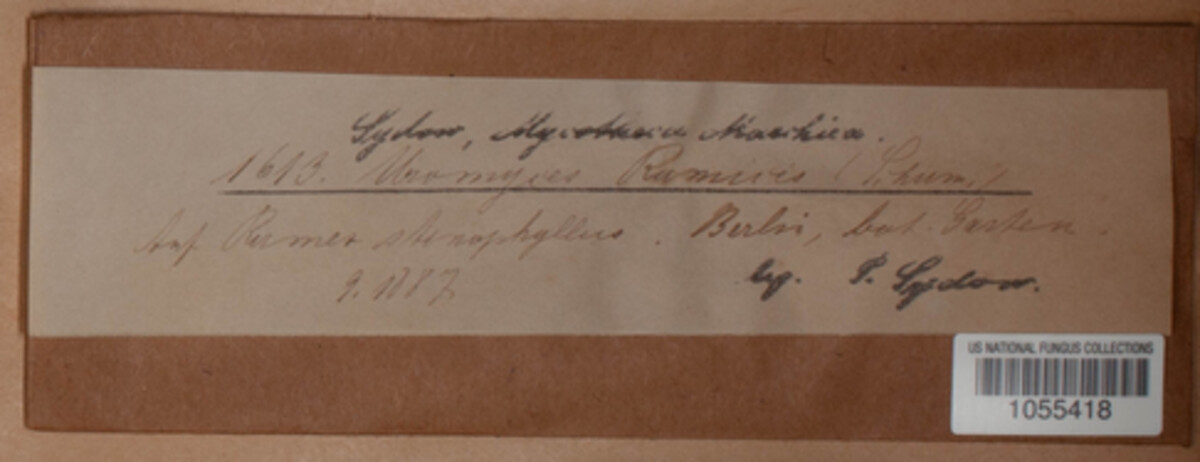 Sydow, Mycotheca Marchica.
1613. Uromyces Rumicis (Schum.)
Auf Rumex stenophyllus. Berlin, bot. Garten.
9. 1887 leg. P. Sydow.
US NATIONAL FUNGUS COLLECTIONS
1055418